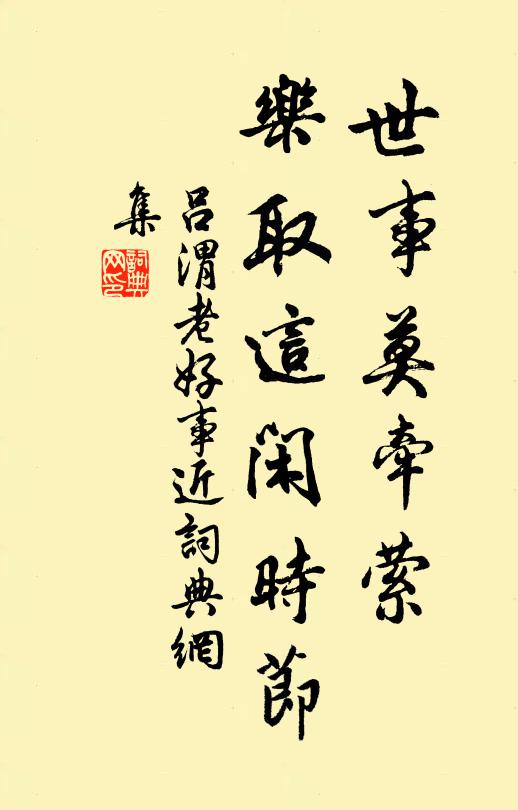 世事莫牽縈
樂取這閑時節
呂渭老好事近詞典網
集
詞典
网印